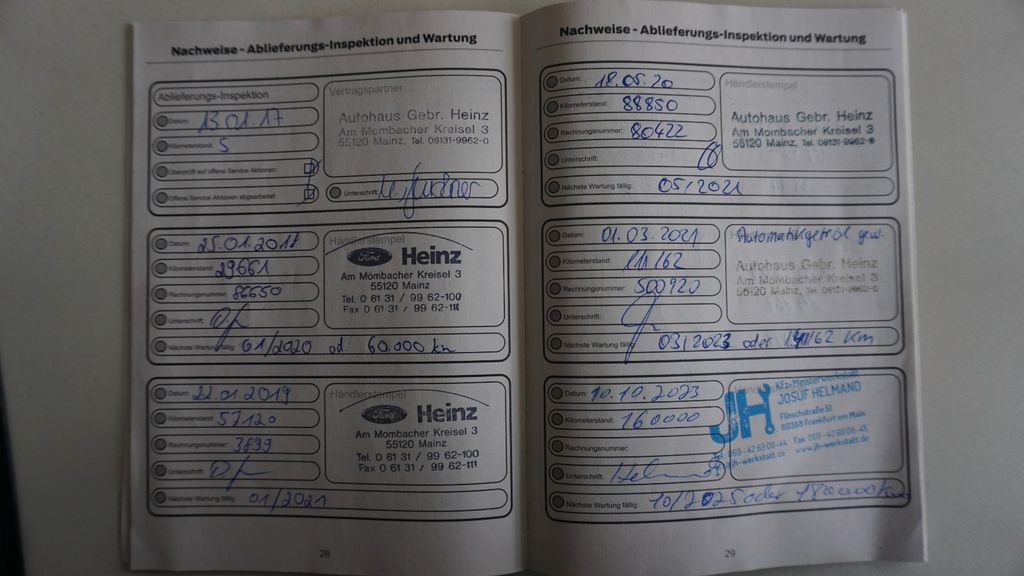 Nachweise - Ablieferungs-Inspektion und Wartung
Ablieferungs-Inspektion
Datum: 13 01 17
Kilometerstand: 5
Überprüft auf offene Service Aktionen:
Offene Service Aktionen abgearbeitet:
Vertragspartner
Autohaus Gebr. Heinz
Am Mombacher Kreisel 3
55120 Mainz, Tel. 06131-9962-0
Unterschrift:
Datum: 25.01.2018
Kilometerstand: 29651
Rechnungsnummer: 86650
Unterschrift:
Händlerstempel
Ford Heinz
Am Mombacher Kreisel 3
55120 Mainz
Tel. 0 61 31 / 99 62-100
Fax 0 61 31 / 99 62-111
Nächste Wartung fällig: 01/2020 od. 60.000 km
Datum: 22.01.2019
Kilometerstand: 57120
Rechnungsnummer: 3899
Unterschrift:
Händlerstempel
Ford Heinz
Am Mombacher Kreisel 3
55120 Mainz
Tel. 0 61 31 / 99 62-100
Fax 0 61 31 / 99 62-111
Nächste Wartung fällig: 01/2021
28
Nachweise - Ablieferungs-Inspektion und Wartung
Datum: 18.05.20
Kilometerstand: 88850
Rechnungsnummer: 80422
Unterschrift:
Händlerstempel
Autohaus Gebr. Heinz
Am Mombacher Kreisel 3
55120 Mainz, Tel. 06131-9962-0
Nächste Wartung fällig: 05/2021
Datum: 01.03.2021
Kilometerstand: 111162
Rechnungsnummer: 500920
Unterschrift:
Automatikgetr.öl gew.
Autohaus Gebr. Heinz
Am Mombacher Kreisel 3
55120 Mainz, Tel. 06131-9962-0
Nächste Wartung fällig: 03/2023 oder km
Datum: 10.10.2023
Kilometerstand: 160000
Rechnungsnummer:
Unterschrift: Helmand
JH Kfz-Meisterwerkstatt
JOSUF HELMAND
Flinschstraße 51
60388 Frankfurt am Main
Tel. 069-42 69 08-44 Fax 069-42 69 08-45
@jh-werkstatt.de www.jh-werkstatt.de
Nächste Wartung fällig: 10/2025 oder 180000km
29